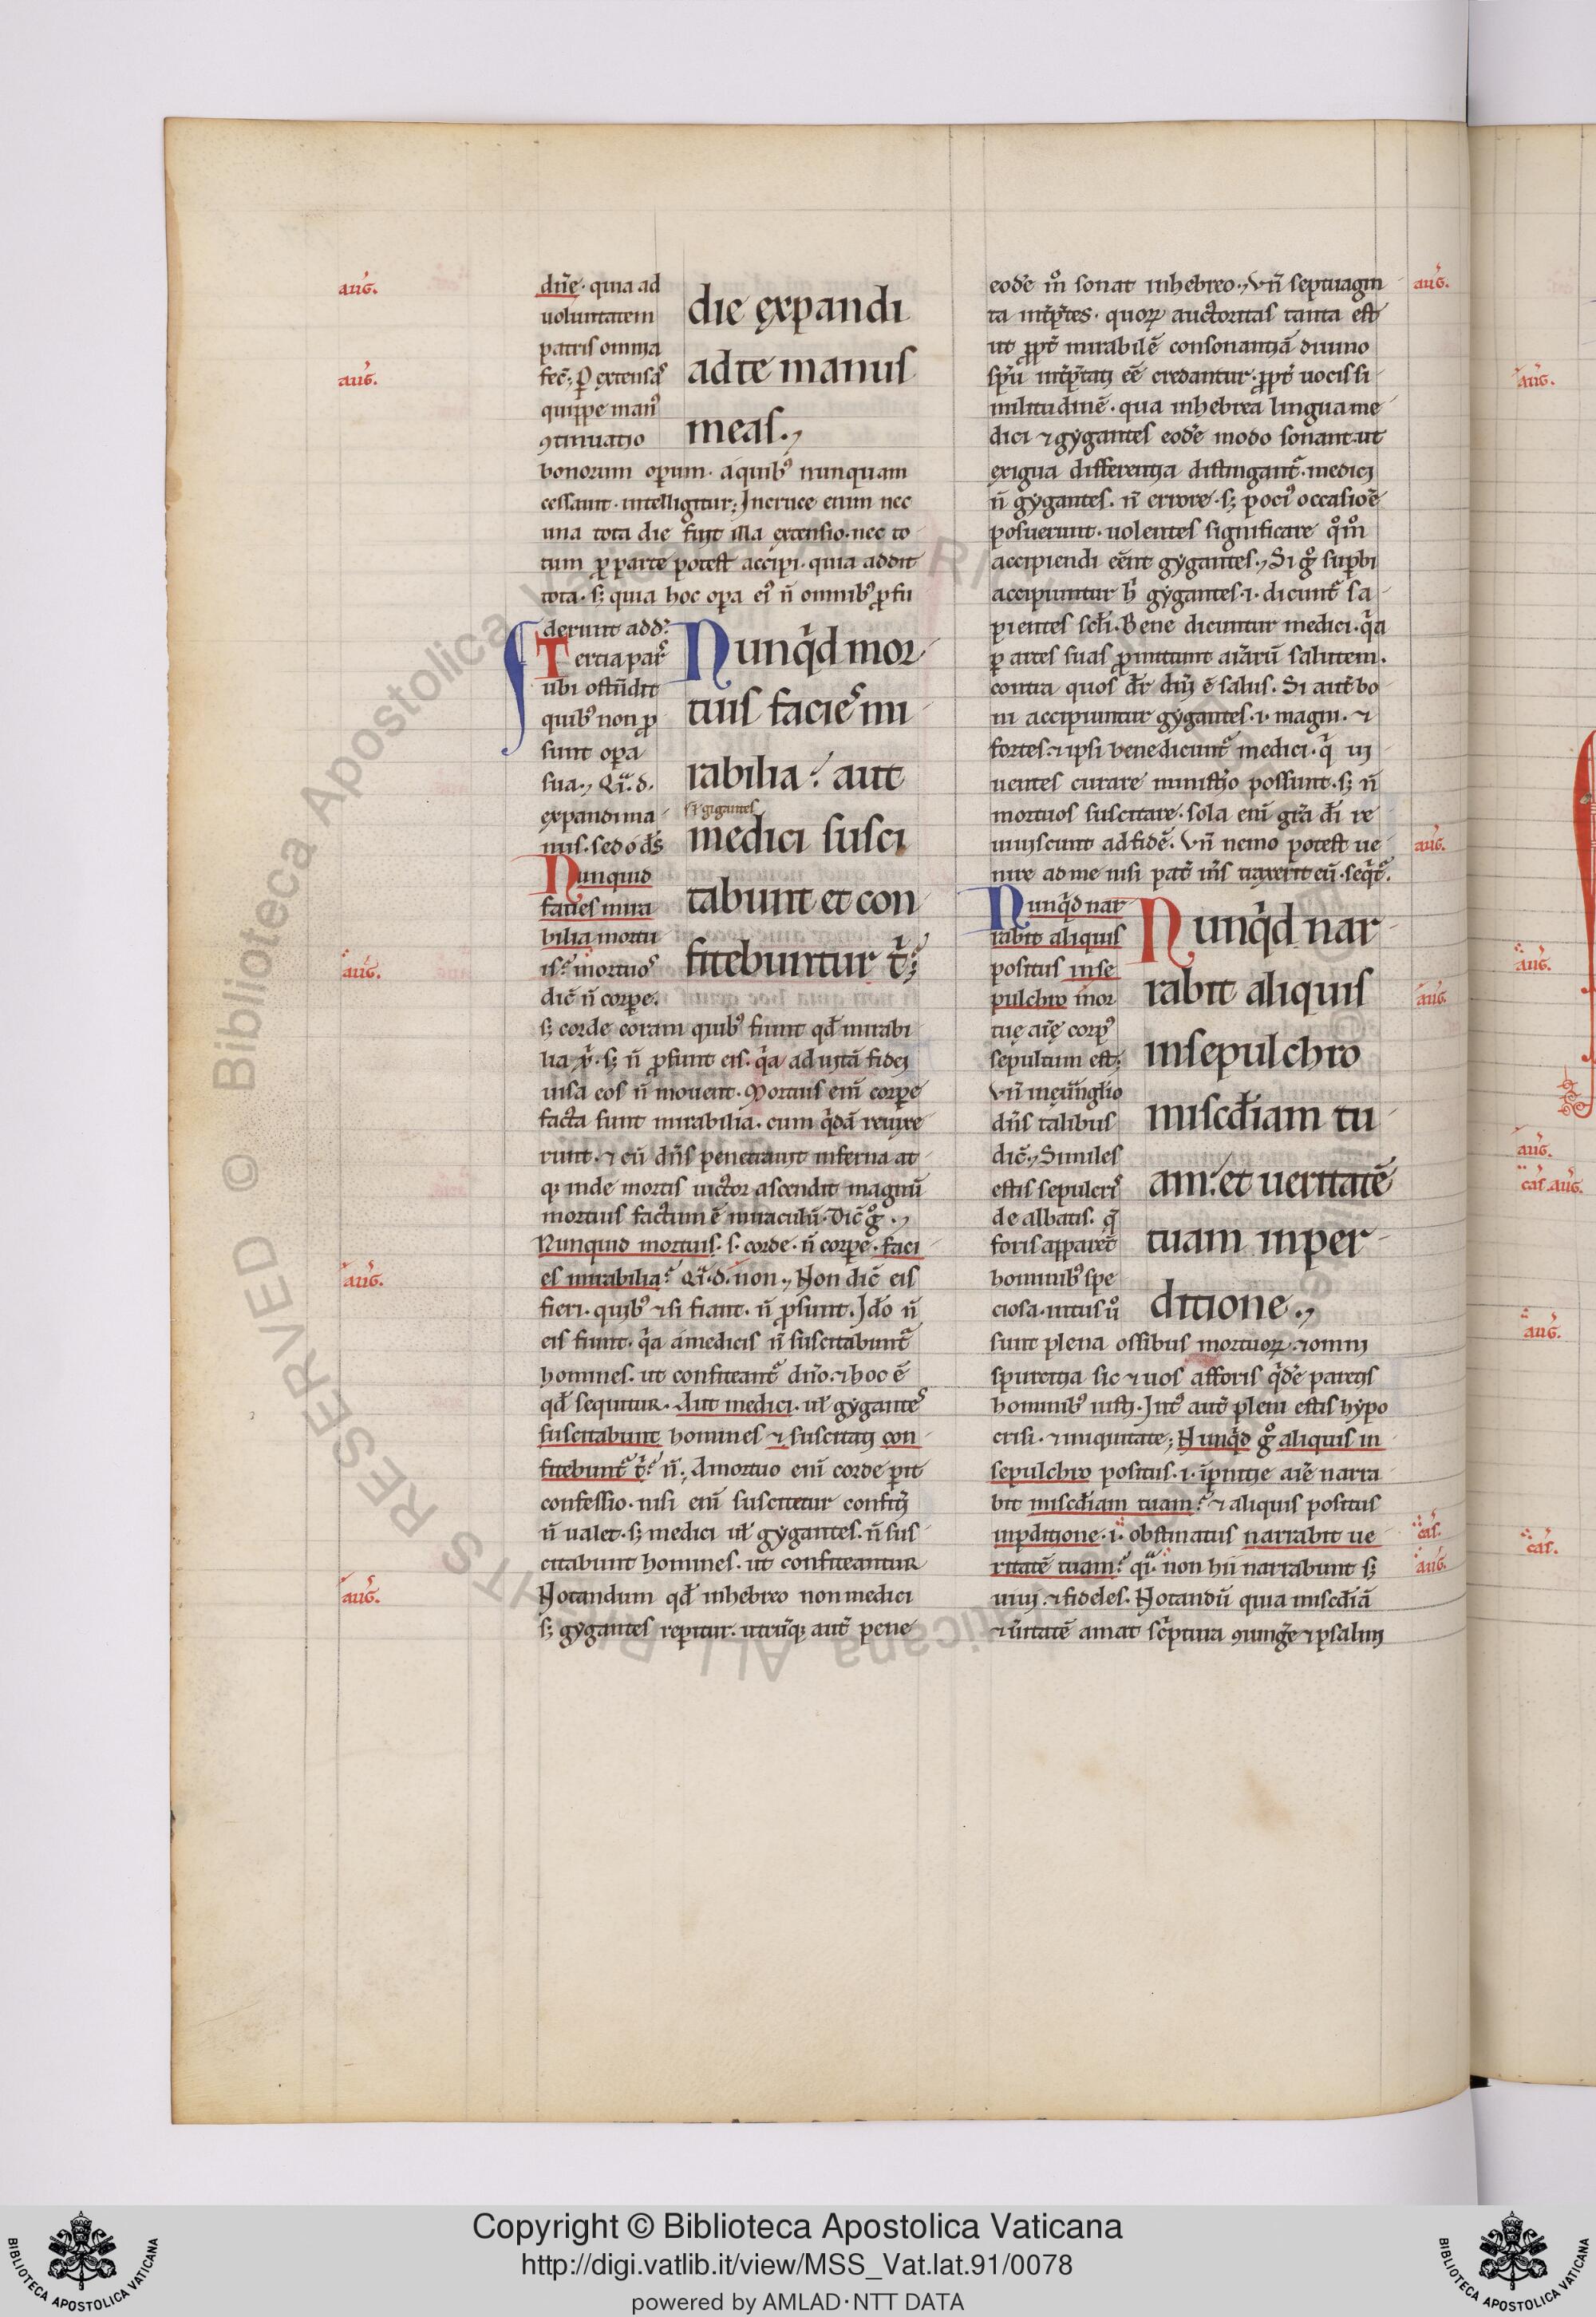 aug̃.
dñe · quia ad
uoluntatem
patris omnia
aug̃.
fec̃; P̱ extensas
quippe man᷒
ꝯtinuatio
die expandi
ad te manus
meas.,
bonorum oꝑum · a quib᷒ nunquam
cessauit · intelligitur; In cruce enim nec
una tota die fuit illa extensio · nec to
tum ꝓ parte potest accipi · quia addit
tota · sꝫ quia hoc oꝑa ei᷒ ñ omnib᷒ ꝓfu
derunt add᷒
Tertia pars
ubi ostendit
quib᷒ non ꝓ
sunt oꝑa
sua., Qͣi · d ·
expandi ma
nus · sed o d̃s
Nunquid
facies mira
bilia mortu
aug̃.
is? mortuos
dic̃ ñ corꝑe.
Nunqͥd mor
tuis facies mi
rabilia? aut
s̃ gigantes
medici susci
tabunt et con
fitebuntur t̃?
sꝫ corde coram quib᷒ fiunt qd̃ mirabi
lia xp̃i · sꝫ ñ ꝓsunt eis · qͥa ad uitã fidei
uisa eos ñ mouent · Mortuis eni̅ corꝑe
facta sunt mirabilia · cum qͥdã reuixe
runt · ⁊ cũ dñs penetrauit inferna at
qꝫ inde mortis uictor ascendit magnũ
mortuis factum ẽ miraculũ · Dic̃ gͦ .,
Nunquid mortuis · s · corde · ñ corꝑe · faci
aug̃.
es mirabilia? Qͣi · d · non., Non dic̃ eis
fieri · quib᷒ ⁊ si fiant · ñ ꝓsunt. Ido̅ ñ
eis fiunt · qͥa a medicis ñ suscitabunt᷑
homines · ut confiteant᷑ dño · ⁊ hoc ẽ
qd̃ sequitur · Aut medici · uł gygantes
suscitabunt homines ⁊ suscitati con
fitebunt᷑ t̃? ñ., A mortuo eni̅ corde ꝑit
confessio · nisi eni̅ suscitetur confiti̅
ñ ualet · sꝫ medici uł gygantes · ñ sus
citabunt homines · ut confiteantur
aug̃.
Notandum qd̃ in hebreo non medici
sꝫ gygantes reꝑitur · utrũqꝫ aut̃ pene
aug̃.
eode̅ mͦ sonat in hebreo., Vñ septuagin
ta int̃p̃tes · quoꝝ auctoritas tanta est
ut ꝓpt̃ mirabilẽ consonantiã diuino
sp̃u int̃p̃tati eẽ credantur · ꝓpt̃ uocis si
militudinẽ · qua in hebrea lingua me
dici ⁊ gygantes eode̅ modo sonant · ut
exigua differentia distingant᷑ · medici
ñ gygantes · ñ errore · sꝫ poci᷒ occasiõe
posuerunt · uolentes significare qͦmͦ
accipiendi eẽnt gygantes., Si gͦ suꝑbi
accipiuntur h̃ gygantes · i · dicunt᷑ sa
pientes sc̃li · Bene dicuntur medici · qͥa
ꝑ artes suas ꝓmittunt ai̅arũ salutem.
contra quos dr̃ dñi ẽ salus · Si aut̃ bo
ni accipiuntur gygantes · i · magni · ⁊
fortes · ⁊ ipsi bene dicunt᷑ medici · qͥ ui
uentes curare minist̃io possunt · sꝫ ñ
mortuos suscitare · sola eni̅ gr̃a dĩ re
aug̃.
uiuiscunt ad fidẽ · Vñ nemo potest ue
nire ad me nisi pat̃ m̃s traxerit eũ · seqͥt᷑.
Nunqͥd nar
rabit aliquis
positus in se
aug̃.
pulchro mor
tuę aĩę corp᷒
sepultum est;
Vñ in eũnglio
dñs talibus
dic̃., Similes
estis sepulcris
de albatis · q̃
foris apparẽt
hominib᷒ spe
ciosa · intus uͦ
Nunqͥd nar
rabit aliquis
in sepulchro
misc̃diam tu
am? et ueritatẽ
tuam in per
ditione.,
sunt plena ossibus mortuoꝝ · ⁊ omni
spurcitia sic ⁊ uos a foris qͥde̅ paretis
hominib᷒ iusti · Int᷒ aut̃ pleni estis hypo
crisi · ⁊ iniquitate; Nunqͥd gͦ aliquis in
sepulchro positus · i · i̅p̃nitẽ aĩe narra
bit misc̃diam tuam? ⁊ aliquis positus
cas̃.
in ꝑditione · i · obstinatus narrabit ue
aug̃.
ritatẽ tuam? qͣi · non hii narrabunt sꝫ
uiui · ⁊ fideles · Notandũ quia misc̃diã
⁊ ũitatẽ amat sc̃ptura ꝯiunge̅ ⁊ psalmi
aug̃.
aug̃.
aug̃.
cas̃. aug̃.
aug̃.
cas̃.
© Biblioteca Apostolica Vaticana ALL RIGHTS RESERVED
Copyright © Biblioteca Apostolica Vaticana
http://digi.vatlib.it/view/MSS_Vat.lat.91/0078
powered by AMLAD·NTT DATA
BIBLIOTECA APOSTOLICA VATICANA
BIBLIOTECA APOSTOLICA VATICANA